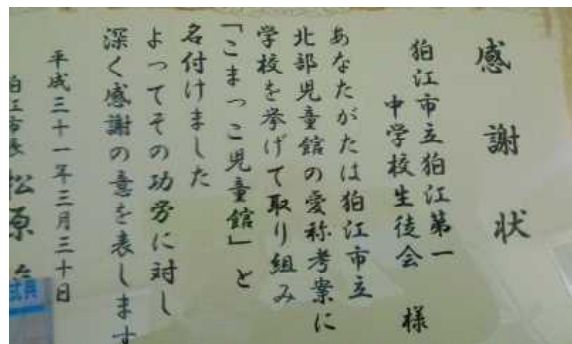 感謝状
狛江市立狛江第一
中学校生徒会 様
あなたがたは狛江市立
北部児童館の愛称考案に
学校を挙げて取り組み
「こまっこ児童館」と
名付けました
よってその功労に対し
深く感謝の意を表します
平成三十一年三月三十日
狛江市長 松原